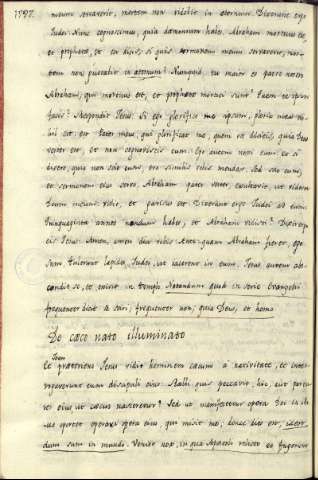 1597.
meum servaverit, mortem non videbit in æternum. Dixerunt ergo
Iudei: Nunc cognovimus, quia dæmonium habes. Abraham mortuus est,
et prophetæ, et tu dicis: si quis sermonem meum servaverit, mor-
tem non gustabit in æternum? Nunquid, tu maior es patre nostro
Abraham, qui mortuus est, et prophetæ mortui sunt? Quem te ipsum
facis? Respondit Iesus: Si ego glorifico me ipsum, gloria mea ni-
hil est: est Pater meus, qui glorificat me, quem vos dicitis, quia Deus
vester est, et non cognovistis eum: Ego autem novi eum: et si
dixero, quia non scio eum, ero similis vobis mendax. Sed scio eum,
et sermonem eius servo. Abraham pater vester exultavit, ut videret
diem meum: vidit, et gavisus est. Dixerunt ergo Iudei ad eum:
Quinquaginta annos nondum habes, et Abraham vidisti? Dixit ergo
eis Iesus: Amen, amen dico vobis: Antequam Abraham fieret, ego
sum. Tulerunt lapides Iudei, ut iacerent in eum: Iesus autem abs-
condit se, et exivit in templo. Notandum quod in serie Evangelii
frequenter dicit à Patri; frequenter non; quia Deus, et homo.
De cœco nato illuminato
Et præteriens Iesus vidit hominem cæcum à nativitate, et inter-
rogaverunt eum discipuli eius: Rabbi, quis peccavit, hic, aut paren-
tes eius, ut cæcus nasceretur? Sed ut manifestetur opera Dei in il-
me oportet operari opera eius, qui misit me, donec dies est,
dum sum in mundo. Veniet nox, in qua Apostoli